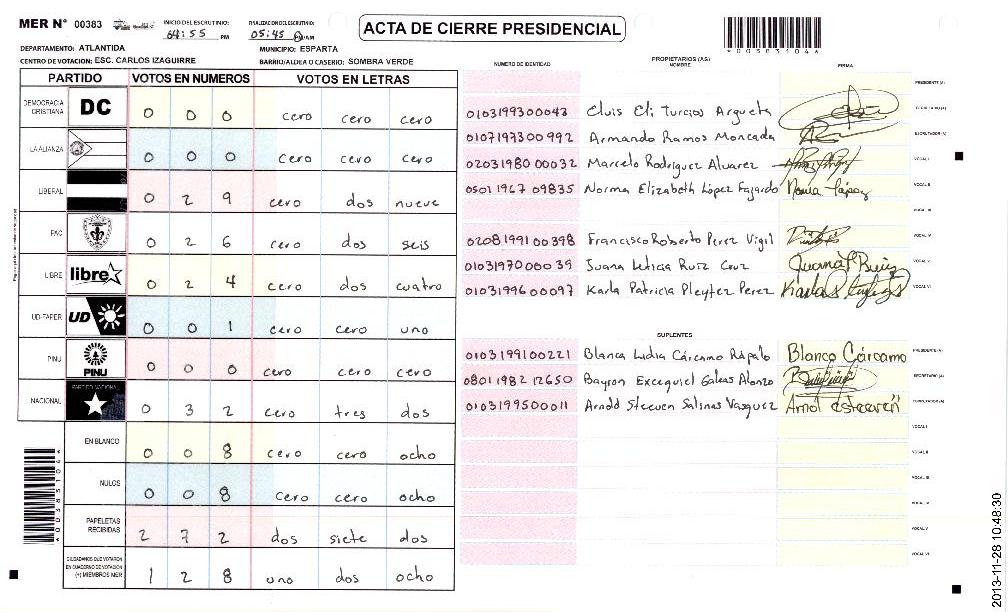 MER Nº 00383
INICIO DEL ESCRUTINIO:
04:55 PM
FINALIZACION DEL ESCRUTINIO:
05:45 PM/AM
ACTA DE CIERRE PRESIDENCIAL
*00383104*
DEPARTAMENTO: ATLANTIDA
MUNICIPIO: ESPARTA
CENTRO DE VOTACION: ESC. CARLOS IZAGUIRRE
BARRIO/ALDEA O CASERIO: SOMBRA VERDE
PARTIDO VOTOS EN NUMEROS VOTOS EN LETRAS
DEMOCRACIA CRISTIANA DC 0 0 0 cero cero cero
LA ALIANZA 0 0 0 cero cero cero
LIBERAL 0 2 9 cero dos nueve
PAC 0 2 6 cero dos seis
LIBRE libre 0 2 4 cero dos cuatro
UD-FAPER UD 0 0 1 cero cero uno
PINU PINU 0 0 0 cero cero cero
NACIONAL PARTIDO NACIONAL 0 3 2 cero tres dos
EN BLANCO 0 0 8 cero cero ocho
NULOS 0 0 8 cero cero ocho
PAPELETAS RECIBIDAS 2 7 2 dos siete dos
CIUDADANOS QUE VOTARON EN CUADERNO DE VOTACION (+) MIEMBROS MER 1 2 8 uno dos ocho
*00383104*
NUMERO DE IDENTIDAD
PROPIETARIOS (AS)
NOMBRE
FIRMA
PRESIDENTE (A)
0103199300043 Elvis Eli Turcios Argueta SECRETARIO (A)
0107197300992 Armando Ramos Moncada ESCRUTADOR (A)
0203198000032 Marcelo Rodriguez Alvarez VOCAL I
0501196709835 Norma Elizabeth López Fajardo Norma López VOCAL II
VOCAL III
0208199100398 Francisco Roberto Perez Vigil VOCAL IV
0103197000039 Juana Leticia Ruiz Cruz Juana L Ruiz VOCAL V
0103199600097 Karla Patricia Pleytez Perez VOCAL VI
SUPLENTES
0103199100221 Blanca Lidia Cárcamo Rápalo Blanca Cárcamo PRESIDENTE (A)
0801198212650 Bayron Excequiel Galeas Alonzo SECRETARIO (A)
0103199500011 Arnold Steeven Salinas Vasquez Arnol esteeven ESCRUTADOR (A)
VOCAL I
VOCAL II
VOCAL III
VOCAL IV
VOCAL V
VOCAL VI
2013-11-28 10:48:30